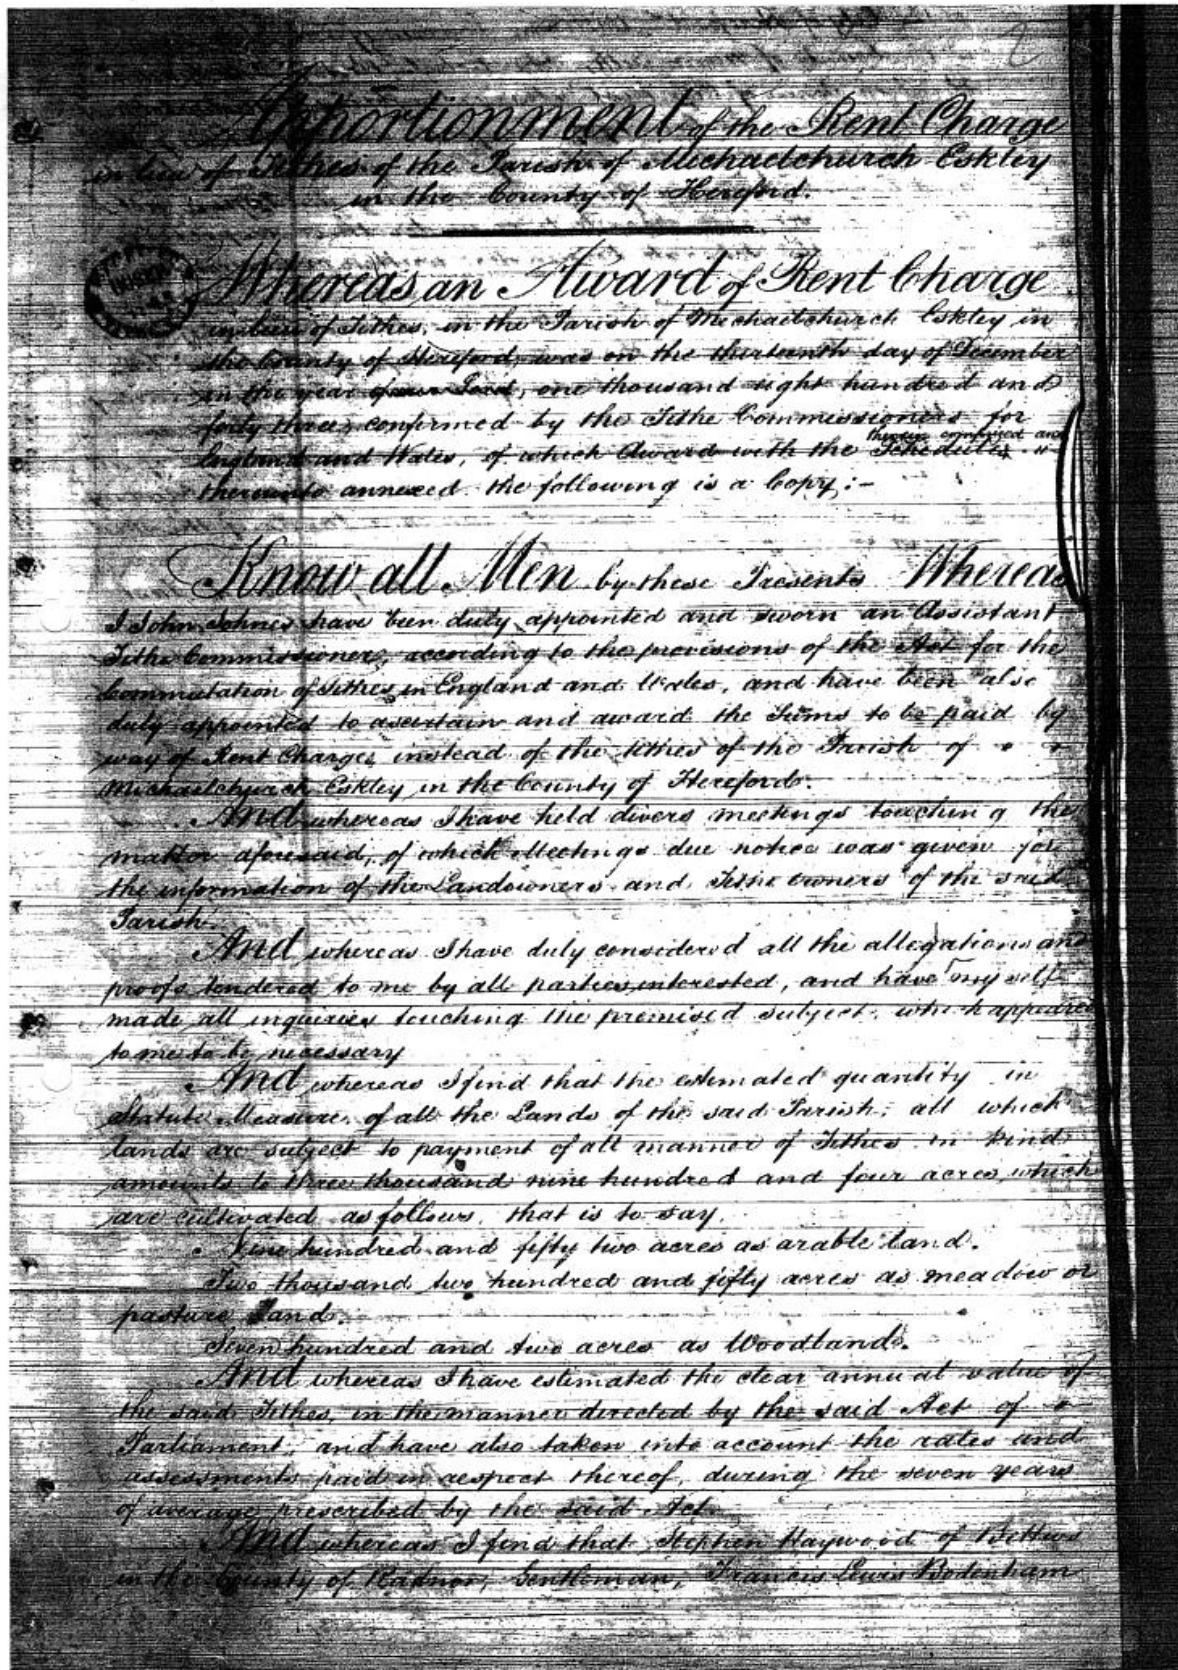 Apportionment of the Rent Charge
in lieu of Tithes of the Parish of Michaelchurch Eskley
in the County of Hereford.
Whereas an Award of Rent Charge
in lieu of Tithes, in the Parish of Michaelchurch Eskley in
the County of Hereford, was on the thirteenth day of December
in the year of our Lord, one thousand eight hundred and
forty three, confirmed by the Tithe Commissioners for
therein comprised and
England and Wales, of which Award with the Schedules
thereunto annexed the following is a Copy:-
Know all Men by these Presents Whereas
I John Johnes have been duly appointed and sworn an Assistant
Tithe Commissioner, according to the provisions of the Act for the
Commutation of Tithes in England and Wales, and have been also
duly appointed to ascertain and award the Sums to be paid by
way of Rent Charge, instead of the tithes of the Parish of
Michaelchurch Eskley in the County of Hereford.
And whereas I have held divers meetings touching the
matter aforesaid, of which Meetings due notice was given for
the information of the Landowners and Tithe owners of the said
Parish.
And whereas I have duly considered all the allegations and
proofs tendered to me by all parties interested, and have myself
made all inquiries touching the premised subject, which appeared
to me to be necessary
And whereas I find that the estimated quantity in
Statute Measure of all the Lands of the said Parish, all which
lands are subject to payment of all manner of Tithes in kind
amounts to three thousand nine hundred and four acres, which
are cultivated as follows, that is to say.
Nine hundred and fifty two acres as arable land.
Two thousand two hundred and fifty acres as meadow or
pasture Land.
Seven hundred and two acres as Woodland.
And whereas I have estimated the clear annual value of
the said Tithes, in the manner directed by the said Act of
Parliament, and have also taken into account the rates and
assessments paid in respect thereof, during the seven years
of average prescribed by the said Act.
And whereas I find that Stephen Haywood of Bettws
in the County of Radnor, Gentleman, Francis Lewis Bodenham